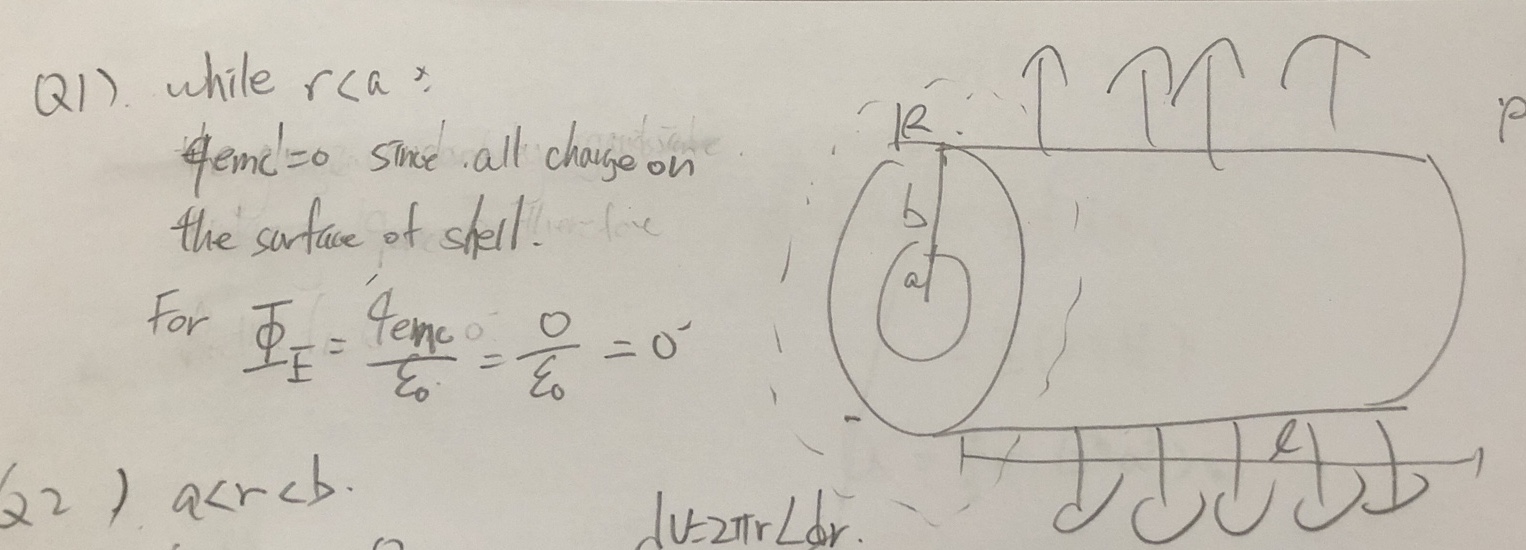 Q1). while r<a :
qenc=0 since all charge on
the surface of shell.
For Φ_E = qenc/ε₀ = 0/ε₀ = 0
R.
b
a
l
Q2). a<r<b.
dV=2πrLdr.